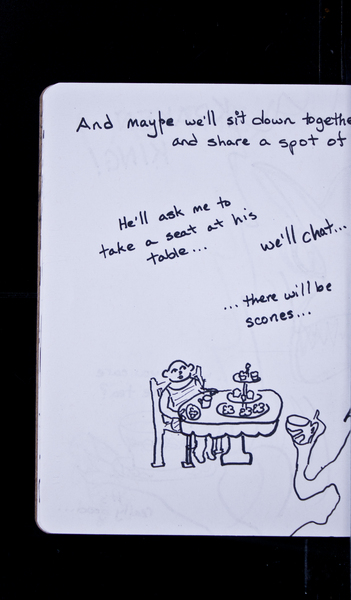 And maybe we'll sit down togethe
and share a spot of
He'll ask me to
take a seat at his
table...
we'll chat...
...there will be
scones...